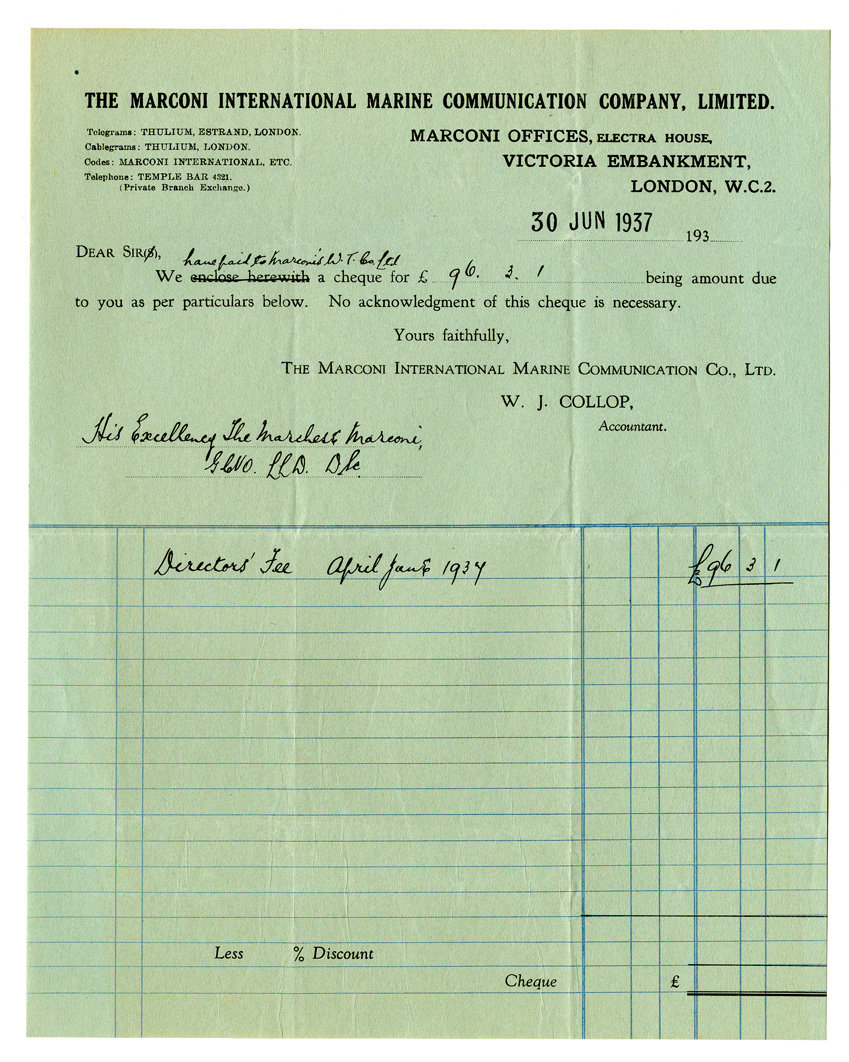 THE MARCONI INTERNATIONAL MARINE COMMUNICATION COMPANY, LIMITED.
Telegrams: THULIUM, ESTRAND, LONDON.
Cablegrams: THULIUM, LONDON.
Codes: MARCONI INTERNATIONAL, ETC.
Telephone: TEMPLE BAR 4321.
(Private Branch Exchange.)
MARCONI OFFICES, ELECTRA HOUSE,
VICTORIA EMBANKMENT,
LONDON, W.C.2.
30 JUN 1937 193
DEAR SIR(S),
have paid to Marconi's W. T. Co. Ltd
We enclose herewith a cheque for £ 96. 3. 1 being amount due
to you as per particulars below. No acknowledgment of this cheque is necessary.
Yours faithfully,
THE MARCONI INTERNATIONAL MARINE COMMUNICATION CO., LTD.
W. J. COLLOP,
Accountant.
His Excellency The Marchese Marconi,
GCVO. LLD. DSc
Directors' Fee April June 1937 £96 3 1
Less % Discount
Cheque £